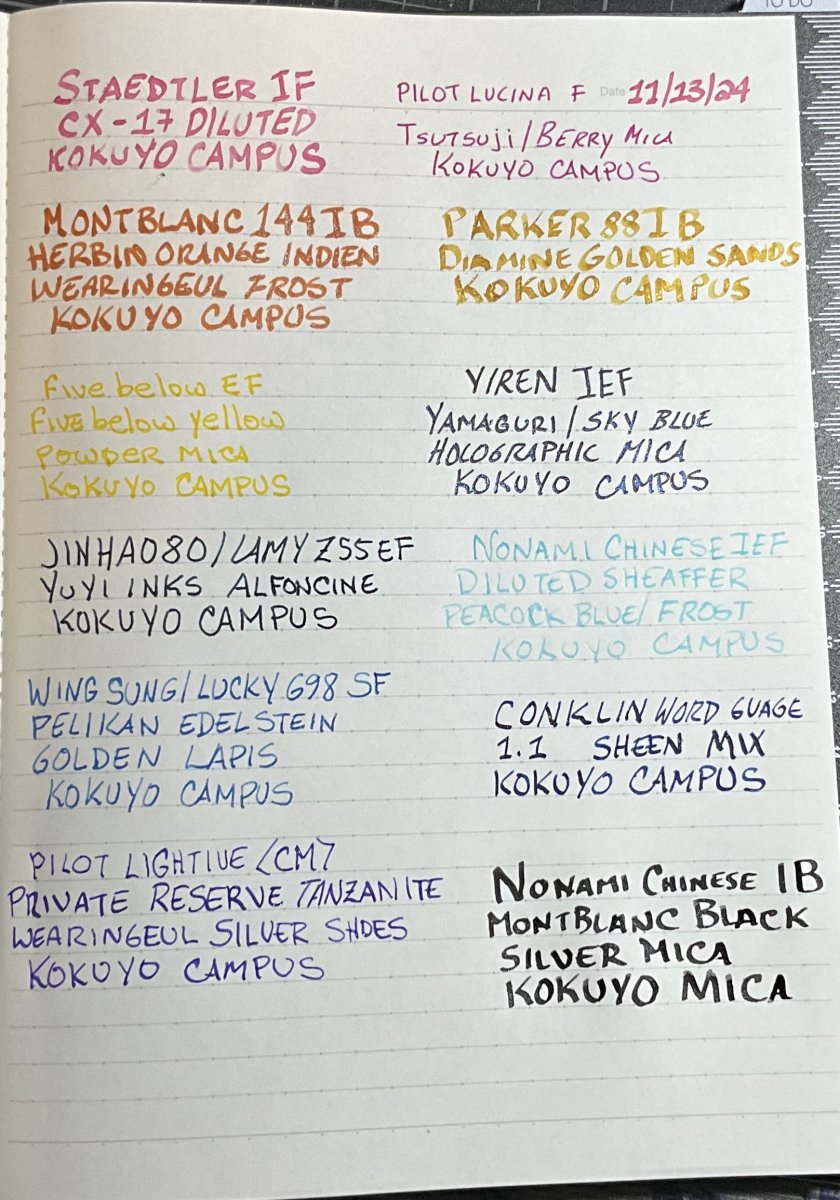 TO DO
STAEDTLER IF
CX-17 DILUTED
KOKUYO CAMPUS
PILOT LUCINA F Date 11/13/24
TSUTSUJI/BERRY MICA
KOKUYO CAMPUS
MONTBLANC 144 IB
HERBIN ORANGE INDIEN
WEARINGEUL FROST
KOKUYO CAMPUS
PARKER 88 IB
DIAMINE GOLDEN SANDS
KOKUYO CAMPUS
five below EF
five below yellow
POWDER MICA
KOKUYO CAMPUS
YIREN IEF
YAMAGURI/SKY BLUE
HOLOGRAPHIC MICA
KOKUYO CAMPUS
JINHAO80/LAMY Z55 EF
YUYI INKS ALFONCINE
KOKUYO CAMPUS
NONAMI CHINESE IEF
DILUTED SHEAFFER
PEACOCK BLUE/FROST
KOKUYO CAMPUS
WING SUNG/LUCKY 698 SF
PELIKAN EDELSTEIN
GOLDEN LAPIS
KOKUYO CAMPUS
CONKLIN WORD GUAGE
1.1 SHEEN MIX
KOKUYO CAMPUS
PILOT LIGHTIVE <CM7
PRIVATE RESERVE TANZANITE
WEARINGEUL SILVER SHOES
KOKUYO CAMPUS
NONAMI CHINESE IB
MONTBLANC BLACK
SILVER MICA
KOKUYO MICA